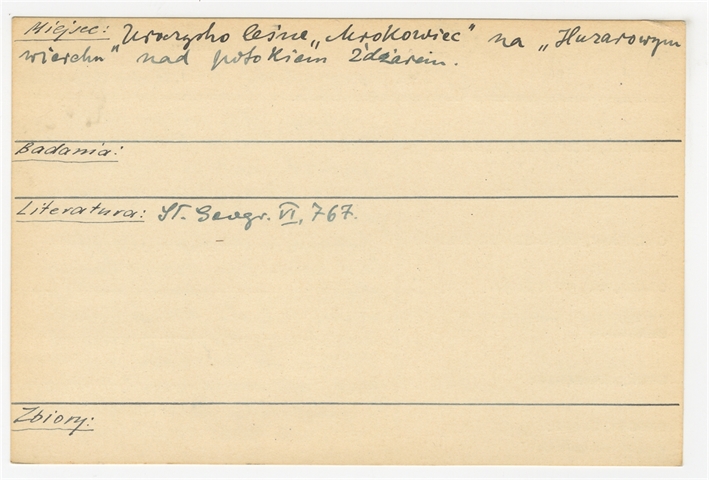 Miejsce: Uroczysko leśne „Mrokowiec" na „Huzarowym
wierchu" nad potokiem Żdżarem.
Badania:
Literatura: Sł. Geogr. VI, 767.
Zbiory: